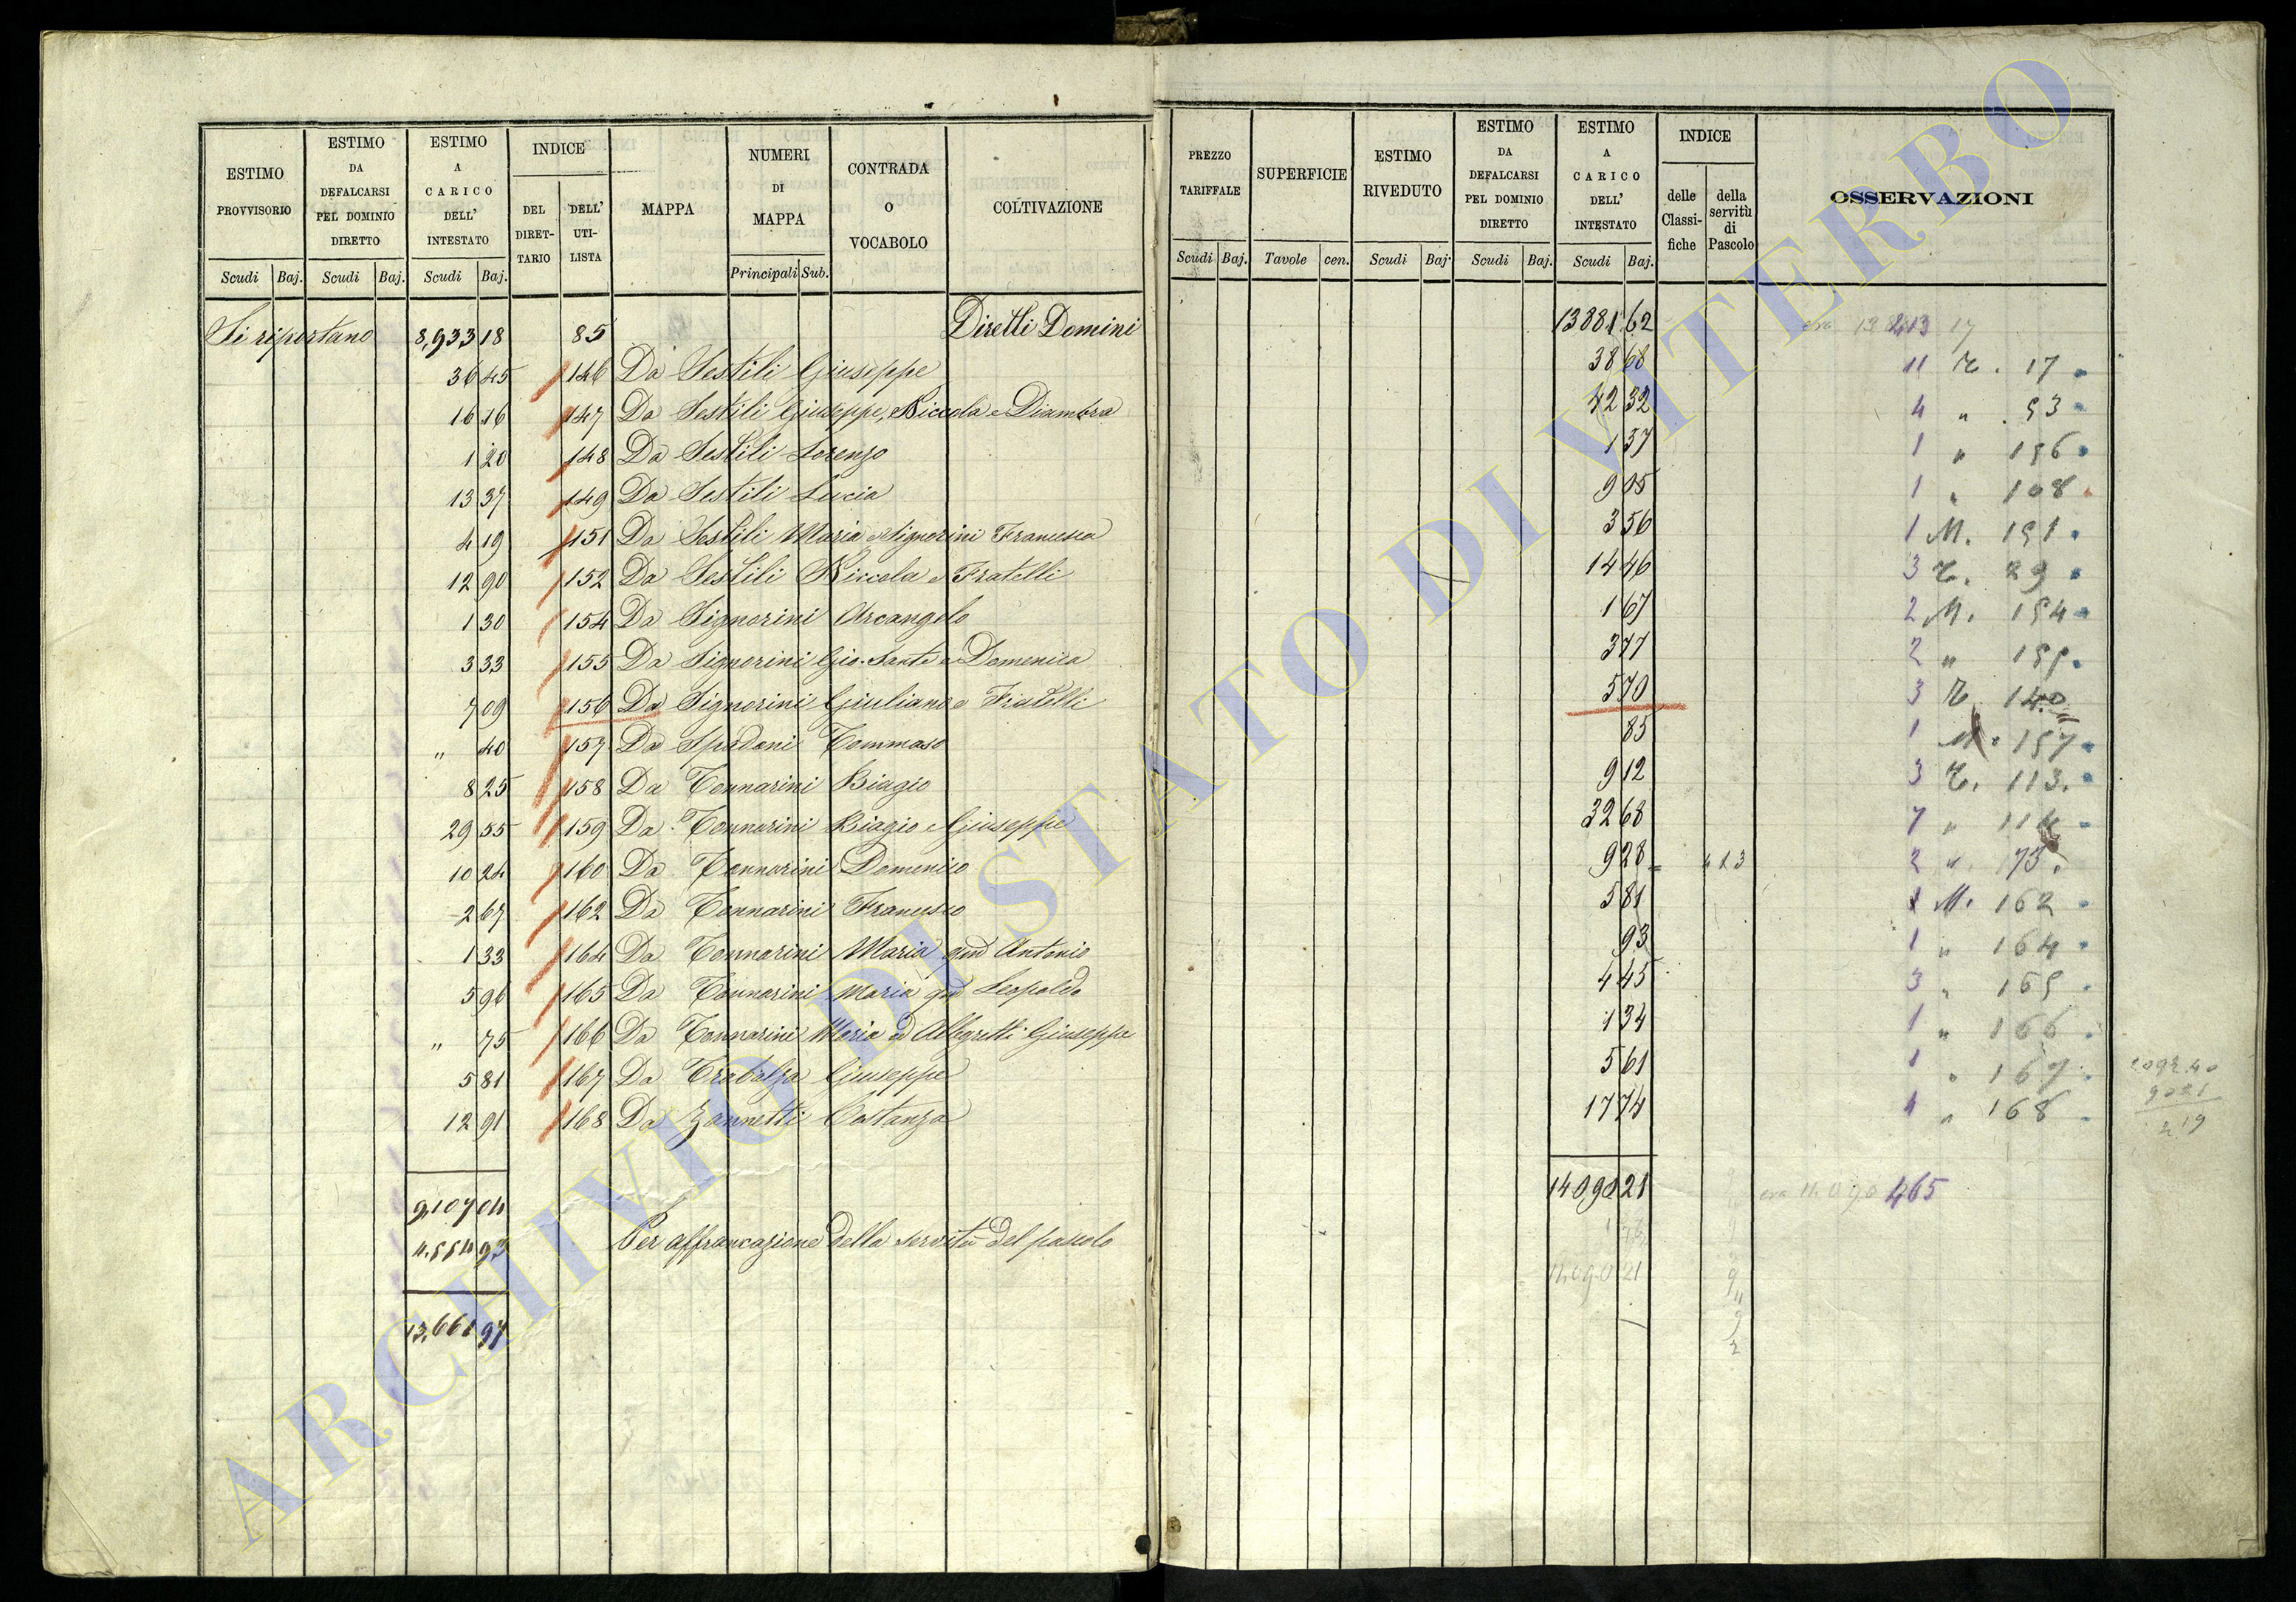 ESTIMO PROVVISORIO | ESTIMO DA DEFALCARSI PEL DOMINIO DIRETTO | ESTIMO A CARICO DELL' INTESTATO | INDICE DEL DIRET-TARIO | DELL' UTI-LISTA | MAPPA | NUMERI DI MAPPA | CONTRADA O VOCABOLO | COLTIVAZIONE | PREZZO TARIFFALE | SUPERFICIE | ESTIMO RIVEDUTO | ESTIMO DA DEFALCARSI PEL DOMINIO DIRETTO | ESTIMO A CARICO DELL' INTESTATO | INDICE delle Classi-fiche | della servitù di Pascolo | OSSERVAZIONI
Scudi Baj. | Scudi Baj. | Scudi Baj. | Principali Sub. | Scudi Baj. | Tavole cen. | Scudi Baj. | Scudi Baj. | Scudi Baj.
Si riportano 8,933 18 85 Diretti Domini 13881 62 413
36 45 146 Da Sestili Giuseppe 38 68 11 17
16 16 147 Da Sestili Giuseppe, Niccola e Diambra 42 32 4 " 53
1 20 148 Da Sestili Lorenzo 1 37 1 " 156
13 37 149 Da Sestili Lucia 9 05 1 " 108
4 19 151 Da Sestili Maria e Signorini Francesca 3 56 1 M. 151
12 90 152 Da Sestili Niccola e Fratelli 14 46 3 29
1 30 154 Da Signorini Arcangelo 1 67 2 M. 154
3 33 155 Da Signorini Gio. Sante e Domenica 3 77 2 " 155
7 09 156 Da Signorini Giuliano e Fratelli 5 70 3 140
" 40 157 Da Spadoni Tommaso 85 1 M. 157
8 25 158 Da Tonnarini Biagio 9 12 3 113.
29 55 159 Da Tonnarini Biagio e Giuseppe 32 68 7 " 114
10 24 160 Da Tonnarini Domenico 9 28 413 2 " 73
2 67 162 Da Tonnarini Francesco 5 81 M. 162
1 33 164 Da Tonnarini Maria qm Antonio 93 1 " 164
5 96 165 Da Tonnarini Maria qm Leopoldo 4 45 3 " 165
" 75 166 Da Tonnarini Maria ed Allegretti Giuseppe 1 34 1 " 166
5 81 167 Da Trabalza Giuseppe 5 61 1 " 167
12 91 168 Da Zannetti Costanza 17 74 4 " 168
9,107 04 14090 21 465
4,554 93 Per affrancazione della servitù del pascolo
14,090 21
13,661 97
ARCHIVIO DI STATO DI VITERBO